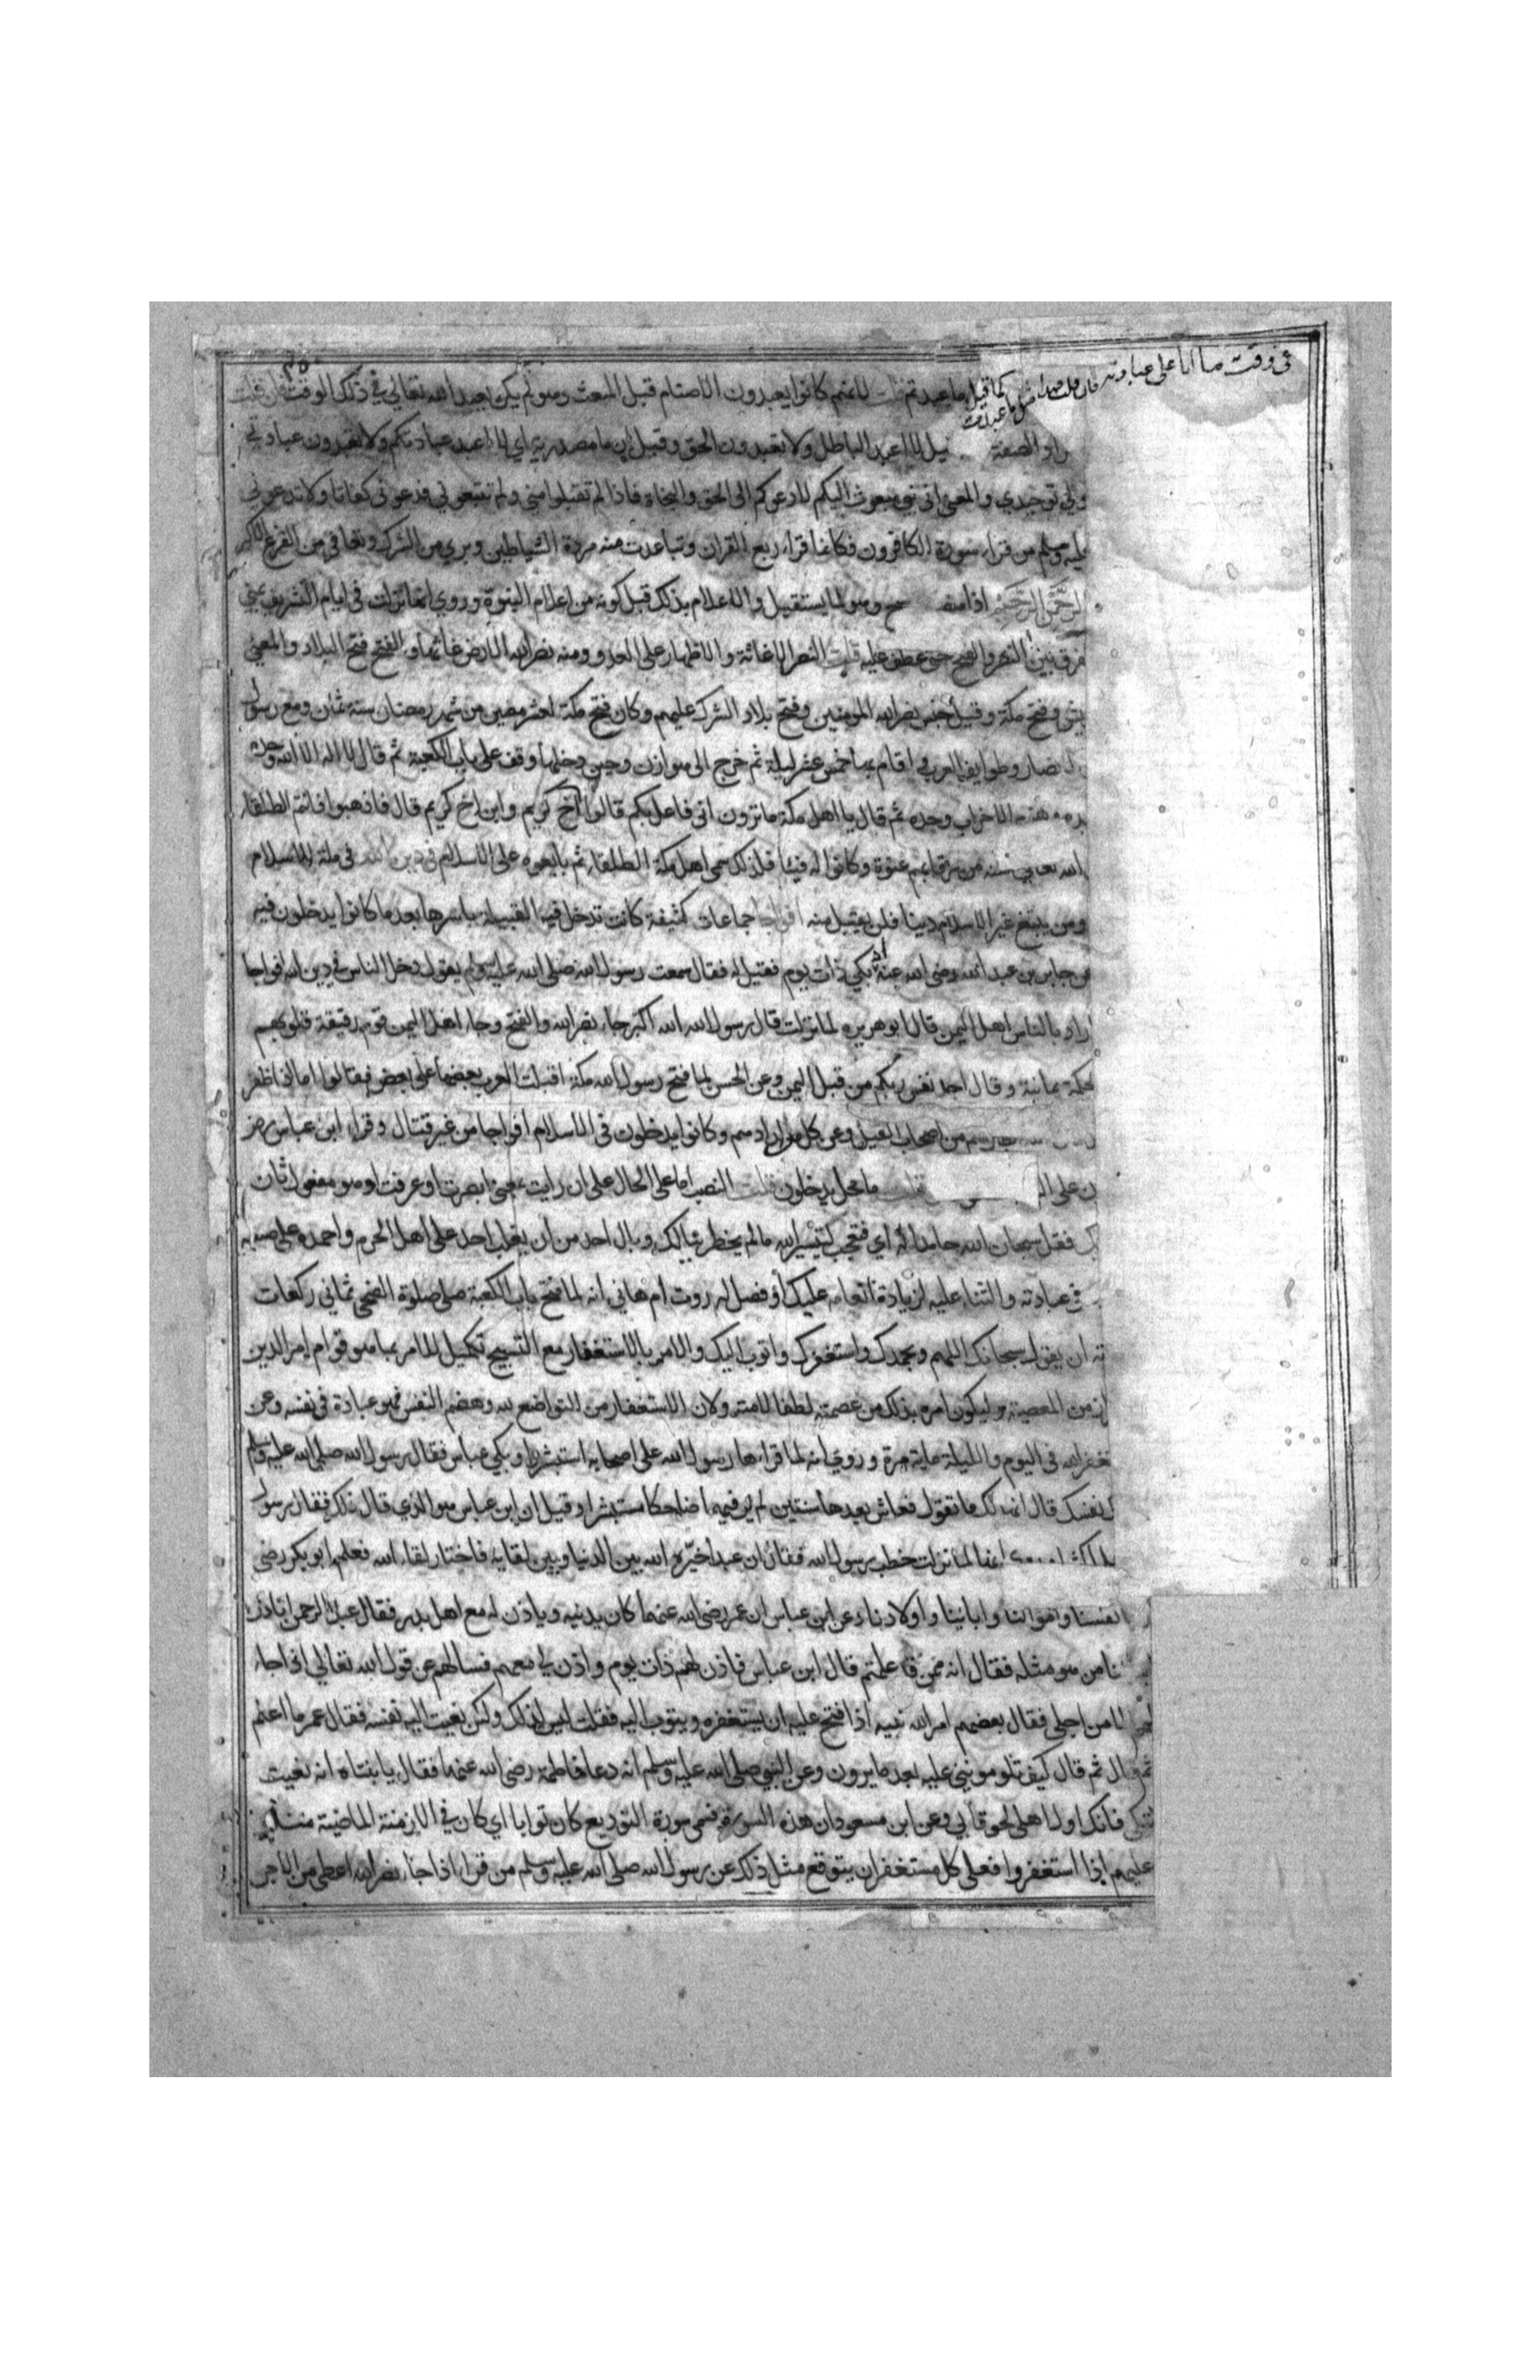 في وقت ما انا على عبادته فان قلت هلا قيل ما عبدت كما قيل ما عبدتم قلت لانهم كانوا يعبدون الاصنام قبل المبعث وهو لم يكن يعبد الله تعالى في ذلك الوقت فان قلت
المراد الصفة قيل لا اعبد الباطل ولا تعبدون الحق وقيل ان ما مصدرية اي لا اعبد عبادتكم ولا تعبدون عبادتي
ولي توحيدي والمعنى اني نبي مبعوث اليكم لادعوكم الى الحق والنجاة فاذا لم تقبلوا مني ولم تتبعوني فدعوني كفافا ولا تدعوني
عليه وسلم من قراء سورة الكافرون فكانما قراء ربع القران وتباعدت منه مردة الشياطين وبري من الشرك وتعافى من الفزع الاكبر
الرحمن الرحيم اذا منصوب بسبح وهو لما يستقبل والاعلام بذلك قبل كونه من اعلام النبوة وروي انها نزلت في ايام التشريق بمنى
فرق بين النصر والفتح حتى عطف عليه قلت النصر الاغاثة والاظهار على العدو ومنه نصر الله الارض غاثها والفتح فتح البلاد والمعنى
وفتح مكة وقيل جنس نصر الله المومنين وفتح بلاد الشرك عليهم وكان فتح مكة لعشر مضين من شهر رمضان سنة ثمان ومع رسول
الانصار وطوايف العرب اقام بها خمس عشر ليلة ثم خرج الى هوازن وحين دخلها وقف على باب الكعبة ثم قال لا اله الا الله وحده
الاحزاب وحده ثم قال يا اهل مكة ما ترون اني فاعل بكم قالوا اخ كريم وابن اخ كريم قال فاذهبوا فانتم الطلقاء
الله تعالى من رقابهم عنوة وكانوا له فيئا فلذلك سمي اهل مكة الطلقاء ثم بايعوه على الاسلام في دين الله في ملة الاسلام
ومن يبتغ غير الاسلام دينا فلن يقبل منه افواجا جماعات كثيفة كانت تدخل فيه القبيلة باسرها بعد ما كانوا يدخلون فيه
عن جابر بن عبد الله رضي الله عنه انه بكى ذات يوم فقيل له فقال سمعت رسول الله صلى الله عليه وسلم يقول دخل الناس في دين الله افواجا
اراد بالناس اهل اليمن قال ابو هريره لما نزلت قال رسول الله الله اكبر جاء نصر الله والفتح وجاء اهل اليمن قوم رقيقة قلوبهم
الحكمة يمانية وقال اجد نفس ربكم من قبل اليمن وعن الحسن لما فتح رسول الله مكة اقبلت العرب بعضها على بعض فقالوا اما اذا ظفر
من اصحاب الفيل وعن كل من ارادهم وكانوا يدخلون في الاسلام افواجا من غير قتال وقراء ابن عباس
ما محل يدخلون قلت النصب اما على الحال على ان رايت بمعنى ابصرت او عرفت او هو مفعول ثان
فقل سبحان الله حامدا له اي فتعجب لتيسير الله ما لم يخطر ببالك وبال احد من ان يغلب احد على اهل الحرم واحمده على صنعه
في عبادته والثناء عليه لزيادة انعامه عليك او فصل له روت ام هاني انه لما فتح باب الكعبة صلى صلوة الضحى ثماني ركعات
ان يقول سبحانك اللهم وبحمدك واستغفرك واتوب اليك والامر بالاستغفار مع التسبيح تكميل للامر بما هو قوام امر الدين
من المعصية وليكون امره بذلك من عصمته لطفا لامته ولان الاستغفار من التواضع لله وهضم النفس فهو عبادة في نفسه وعن
الله في اليوم والليلة ماية مرة وروي انه لما قراءها رسول الله على اصحابه استبشروا وبكى عباس فقال رسول الله صلى الله عليه وسلم
نفسك قال انها لك ما تقول فعاش بعدها سنتين لم ير فيهما ضاحكا مستبشرا وقيل ان ابن عباس هو الذي قال ذلك فقال رسول
انها لما نزلت خطب رسول الله فقال ان عبدا خيره الله بين الدنيا وبين لقايه فاختار لقاء الله فعلم ابو بكر رضي
انفسنا واموالنا وابائنا واولادنا وعن ابن عباس ان عمر رضي الله عنهما كان يدنيه وياذن له مع اهل بدر فقال عبد الرحمن اتاذن
من هو مثله فقال انه ممن قد علمتم قال ابن عباس فاذن لهم ذات يوم واذن لي معهم فسالهم عن قول الله تعالى اذا جاء
الا من اجلي فقال بعضهم امر الله نبيه اذا فتح عليه ان يستغفره ويتوب اليه فقلت ليس كذلك ولكن نعيت اليه نفسه فقال عمر ما اعلم
ثم قال كيف تلومونني عليه بعد ما يرون وعن النبي صلى الله عليه وسلم انه دعا فاطمة رضي الله عنها فقال يا بنتاه انه نعيت
تبكي فانك اول اهلي لحوقا بي وعن ابن مسعود ان هذه السورة تسمى سورة التوديع كان توابا اي كان في الازمنة الماضية منذ
عليهم اذا استغفروا فعلى كل مستغفر ان يتوقع مثل ذلك عن رسول الله صلى الله عليه وسلم من قراء اذا جاء نصر الله اعطي من الاجر